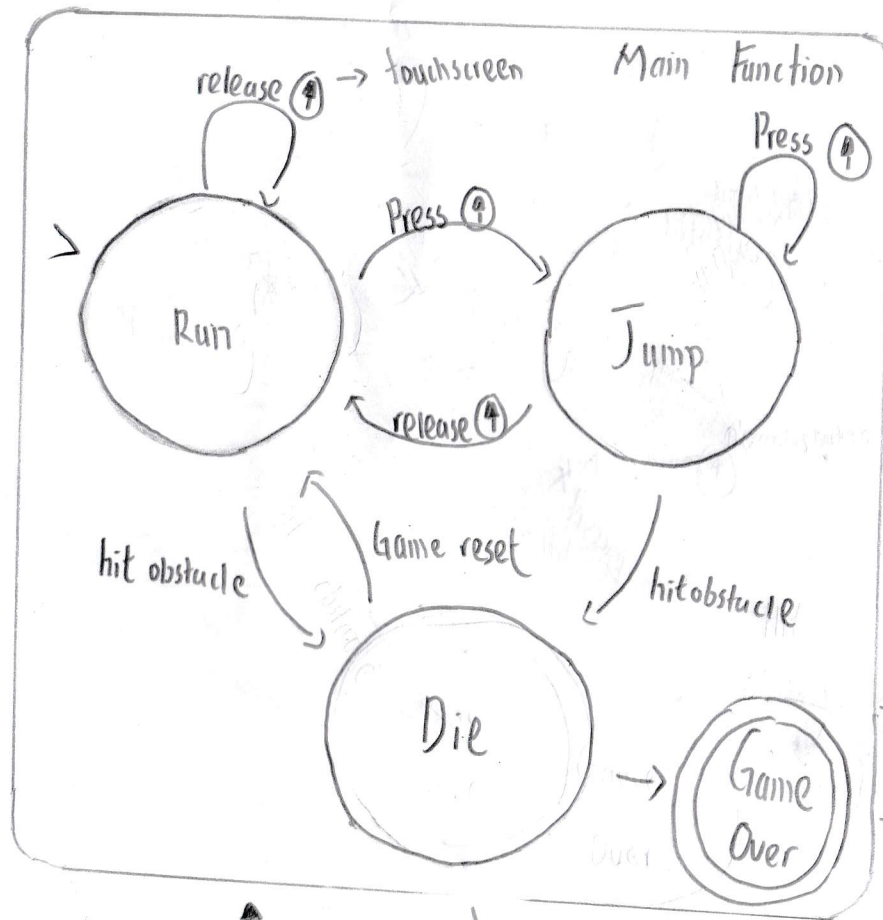 release → touchscreen
Main Function
Press
Press
Run
Jump
release
hit obstacle
Game reset
hit obstacle
Die
Game
Over